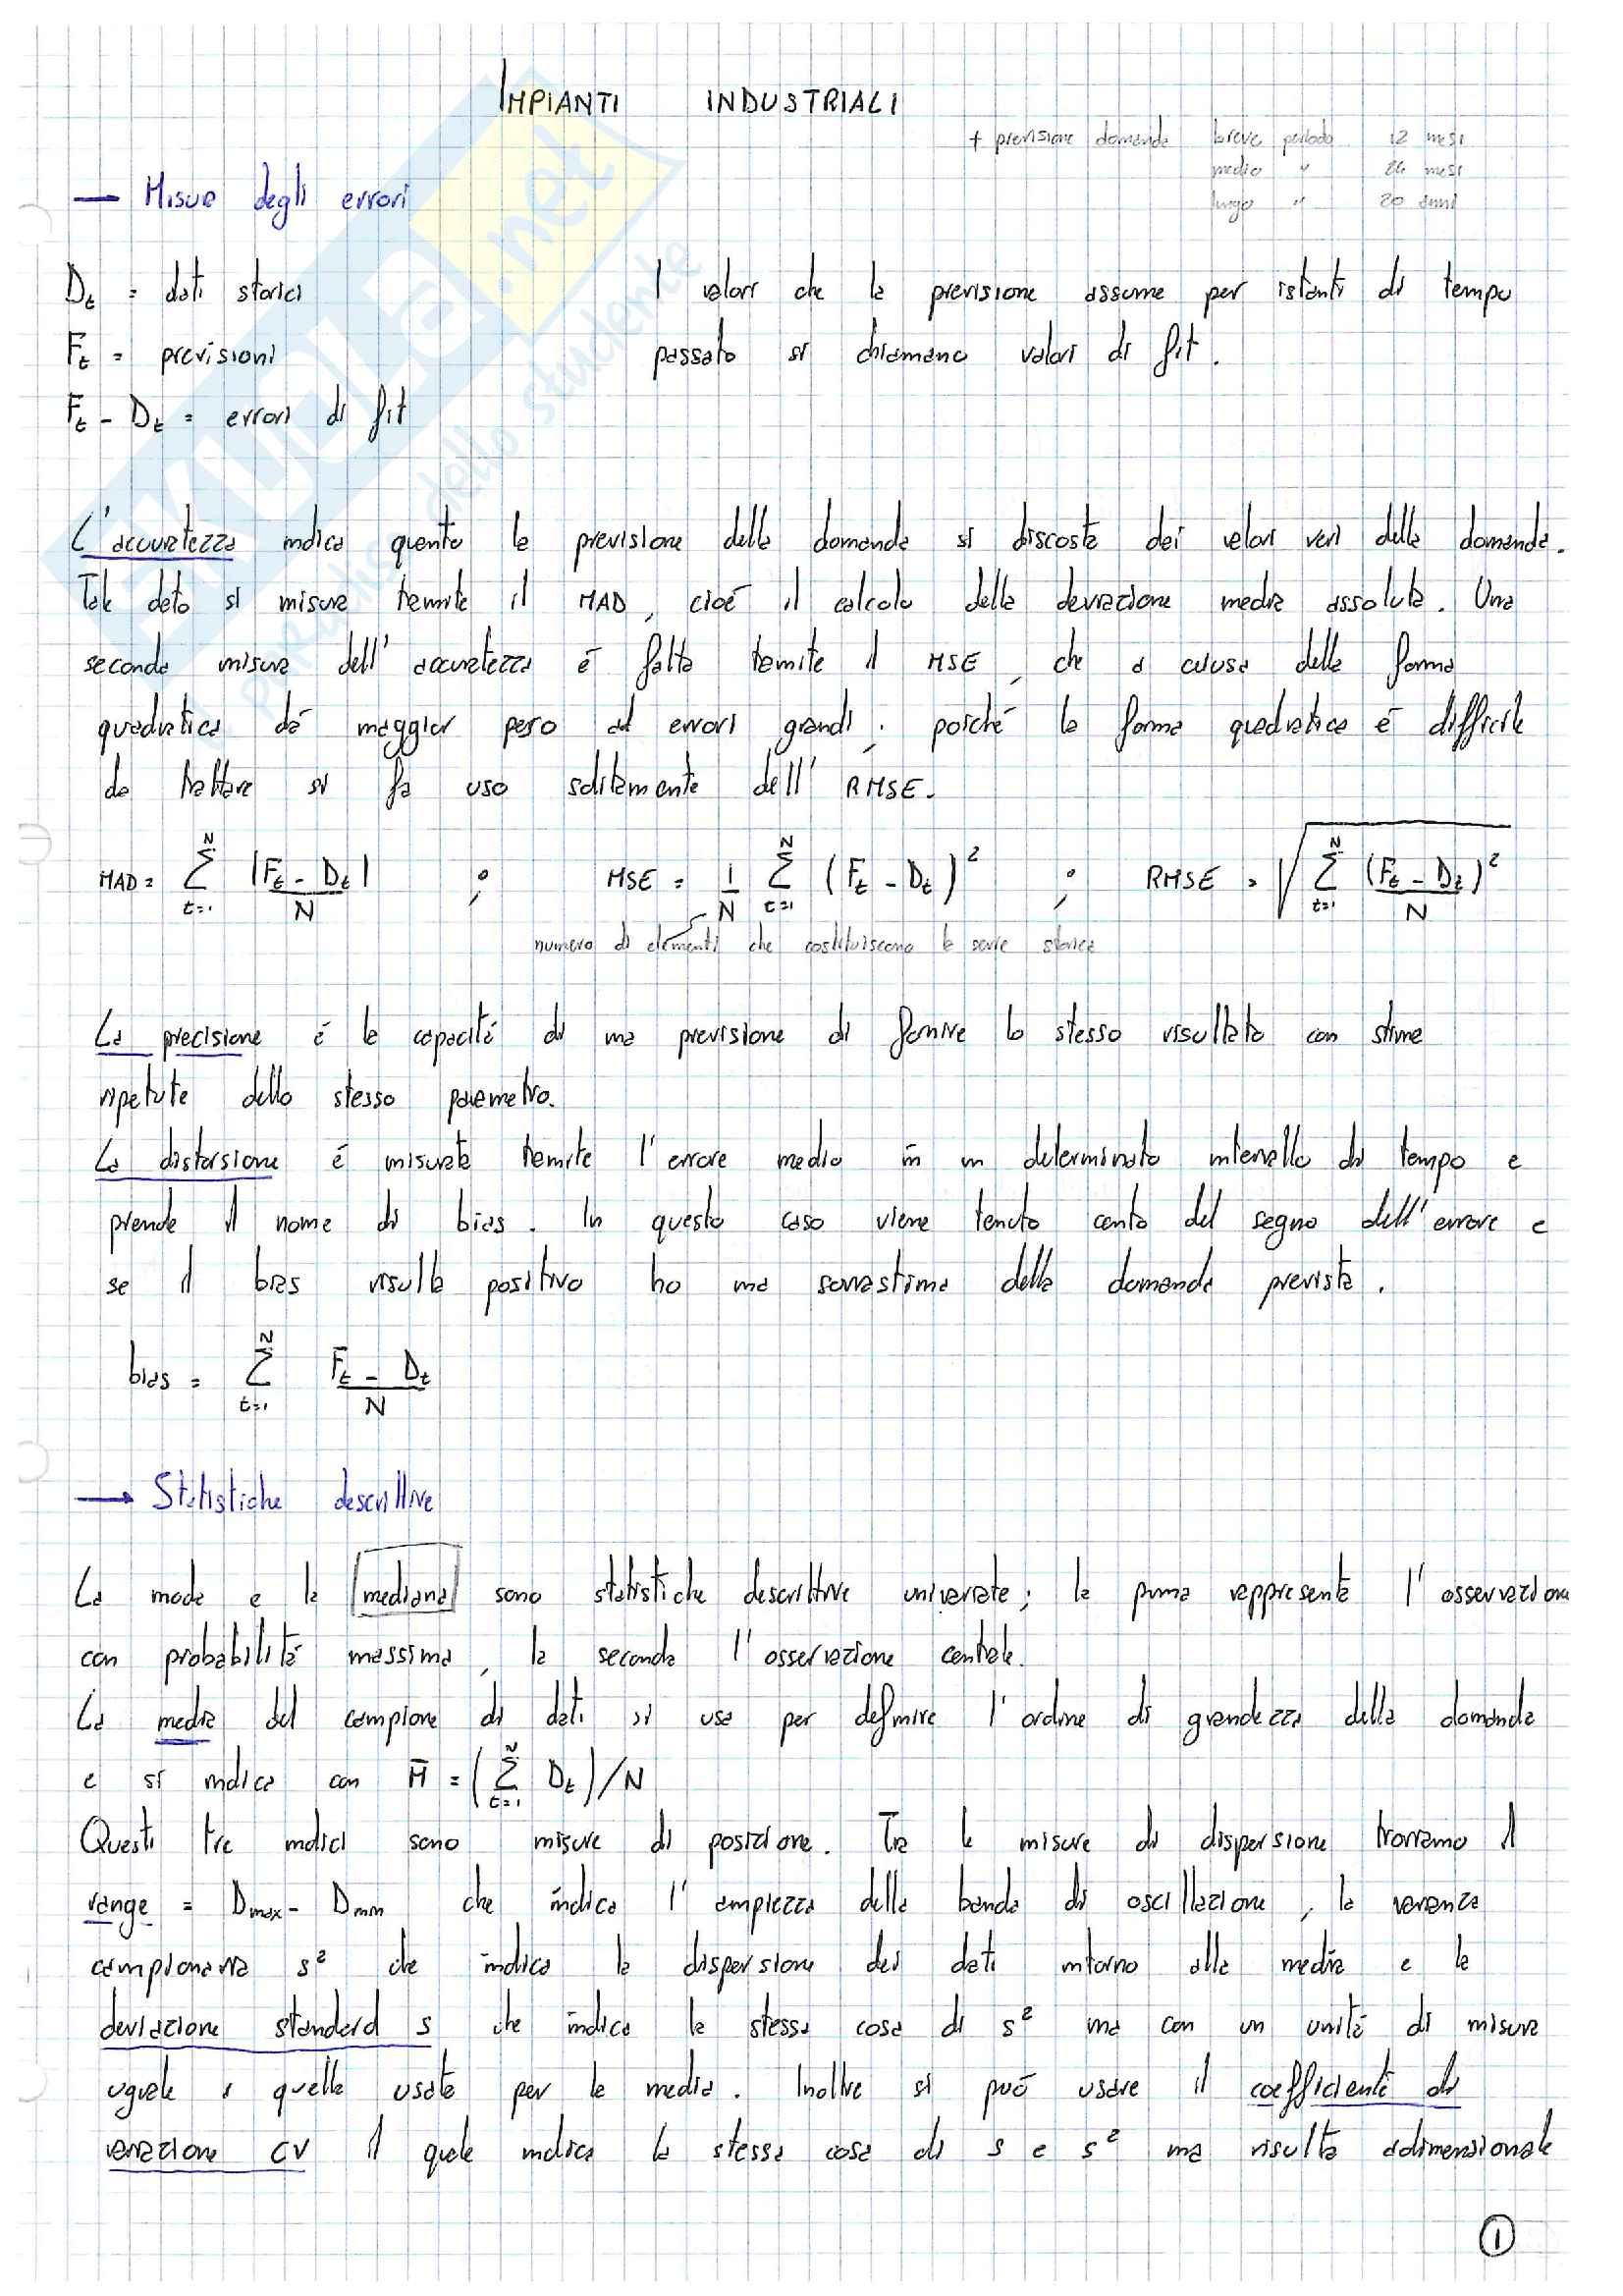 IMPIANTI INDUSTRIALI
+ previsione domanda breve periodo 12 mesi
medio " 24 mesi
lungo " 20 anni
→ Misura degli errori
Dt = dati storici
I valori che la previsione assume per istanti di tempo
Ft = previsioni
passato si chiamano valori di fit.
Ft - Dt = errori di fit
L'accuratezza indica quanto la previsione della domanda si discosta dai valori veri della domanda.
Tale dato si misura tramite il MAD, cioé il calcolo della deviazione media assoluta. Una
seconda misura dell'accuratezza é fatta tramite il MSE, che a causa della forma
quadratica dá maggior peso ad errori grandi; poiché la forma quadratica é difficile
da trattare si fa uso solitamente dell' RMSE.
MAD = N Σ t=1 |Ft - Dt| / N ; MSE = 1/N N Σ t=1 (Ft - Dt)² ; RMSE = √ N Σ t=1 (Ft - Dt)² / N
numero di elementi che costituiscono la serie storica
La precisione é la capacitá di una previsione di fornire lo stesso risultato con stime
ripetute dello stesso parametro.
La distorsione é misurata tramite l'errore medio in un determinato intervallo di tempo e
prende il nome di bias. In questo caso viene tenuto conto del segno dell'errore e
se il bias risulta positivo ho una sovrastima della domanda prevista.
bias = N Σ t=1 Ft - Dt / N
→ Statistiche descrittive
La moda e la mediana sono statistiche descrittive univariate; la prima rappresenta l'osservazione
con probabilitá massima, la seconda l'osservazione centrale.
La media del campione di dati si usa per definire l'ordine di grandezza della domanda
e si indica con M̄ = (N Σ t=1 Dt)/N
Questi tre indici sono misure di posizione. Tra le misure di dispersione troviamo il
range = Dmax - Dmin che indica l'ampiezza della banda di oscillazione, la varianza
campionaria s² che indica la dispersione dei dati intorno alla media e la
deviazione standard s che indica la stessa cosa di s² ma con un unitá di misura
uguale a quella usata per la media. Inoltre si puó usare il coefficiente di
variazione CV il quale indica la stessa cosa di s e s² ma risulta adimensionale
1
SKUOLA.net
paradiso dello studente